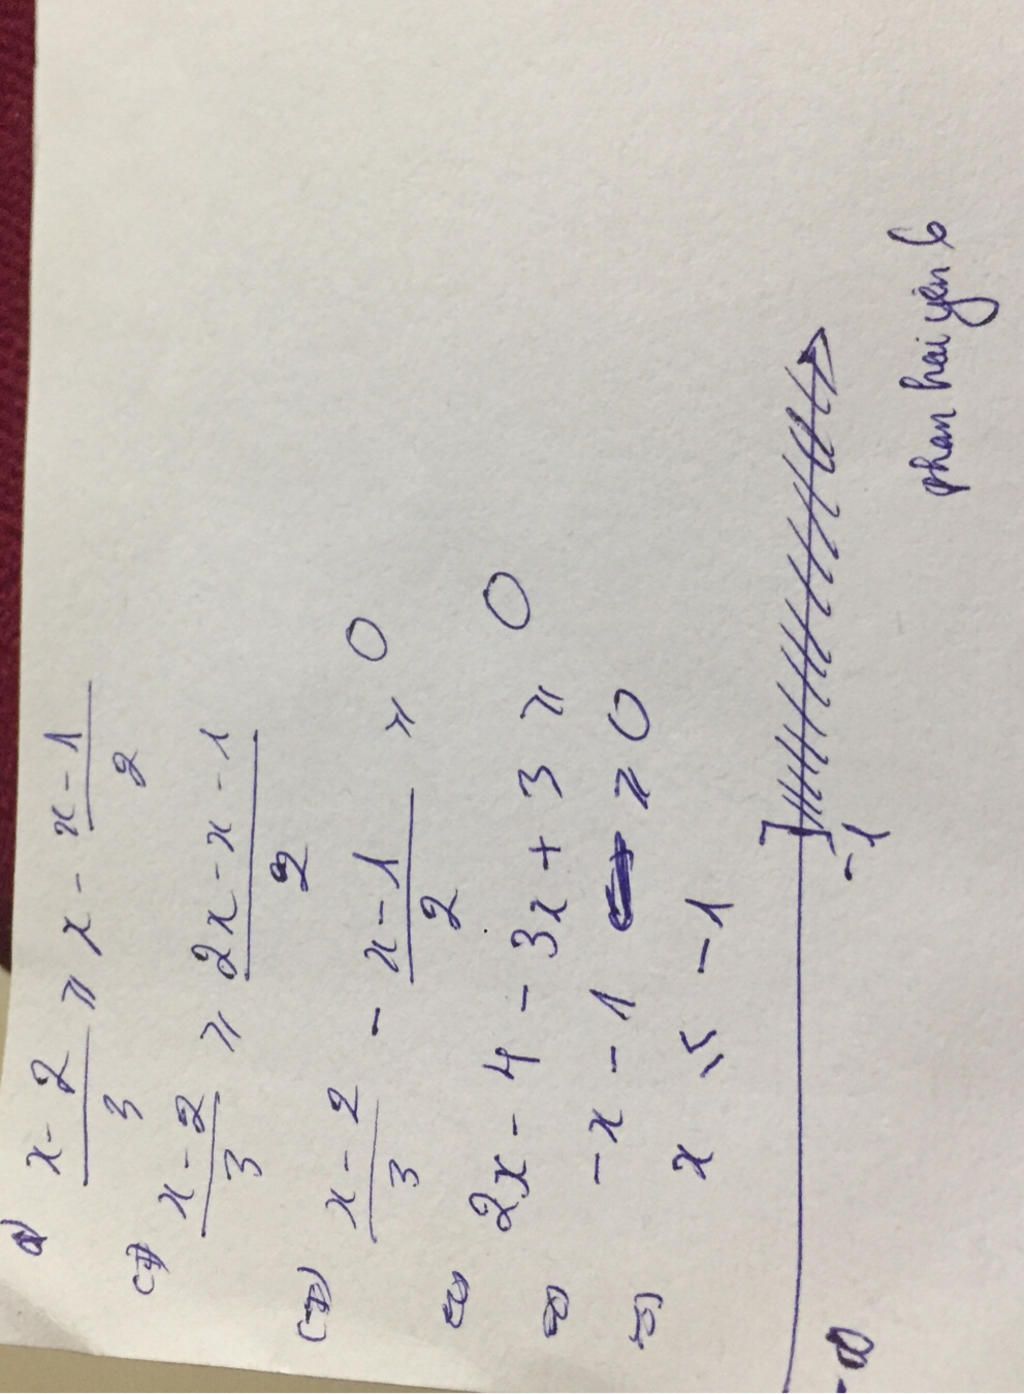 a) \frac{x-2}{3} ≥ x - \frac{x-1}{2}
⇔ \frac{x-2}{3} ≥ \frac{2x-x-1}{2}
⇔ \frac{x-2}{3} - \frac{x-1}{2} ≥ 0
⇔ 2x - 4 - 3x + 3 ≥ 0
⇔ -x - 1 ≥ 0
⇔ x ≤ -1
]
-∞ -1
phan hai yen 6